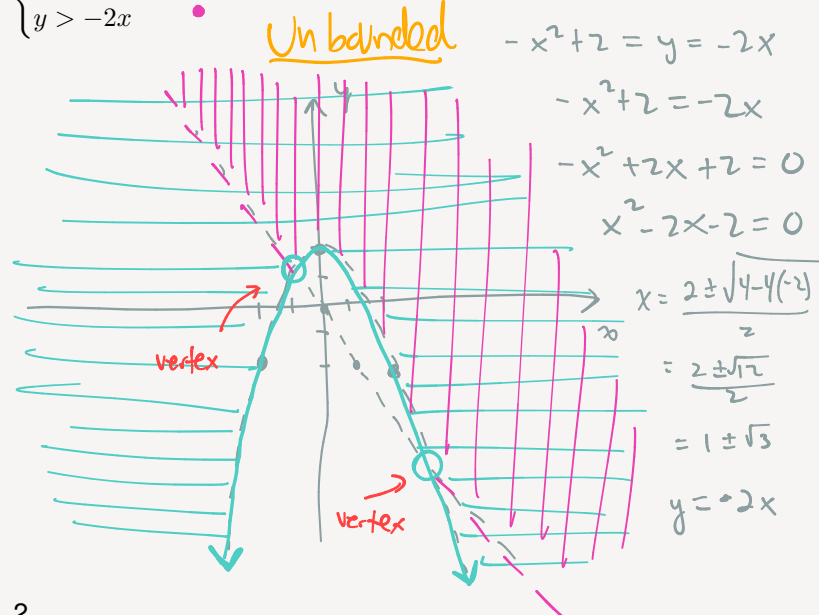 y > −2x
Unbounded
- x² + 2 = y = -2x
- x² + 2 = -2x
- x² + 2x + 2 = 0
x² - 2x - 2 = 0
x = 2 ± √4 - 4(-2)
2
= 2 ± √12
2
= 1 ± √3
y = -2x
y
x
vertex
vertex
2